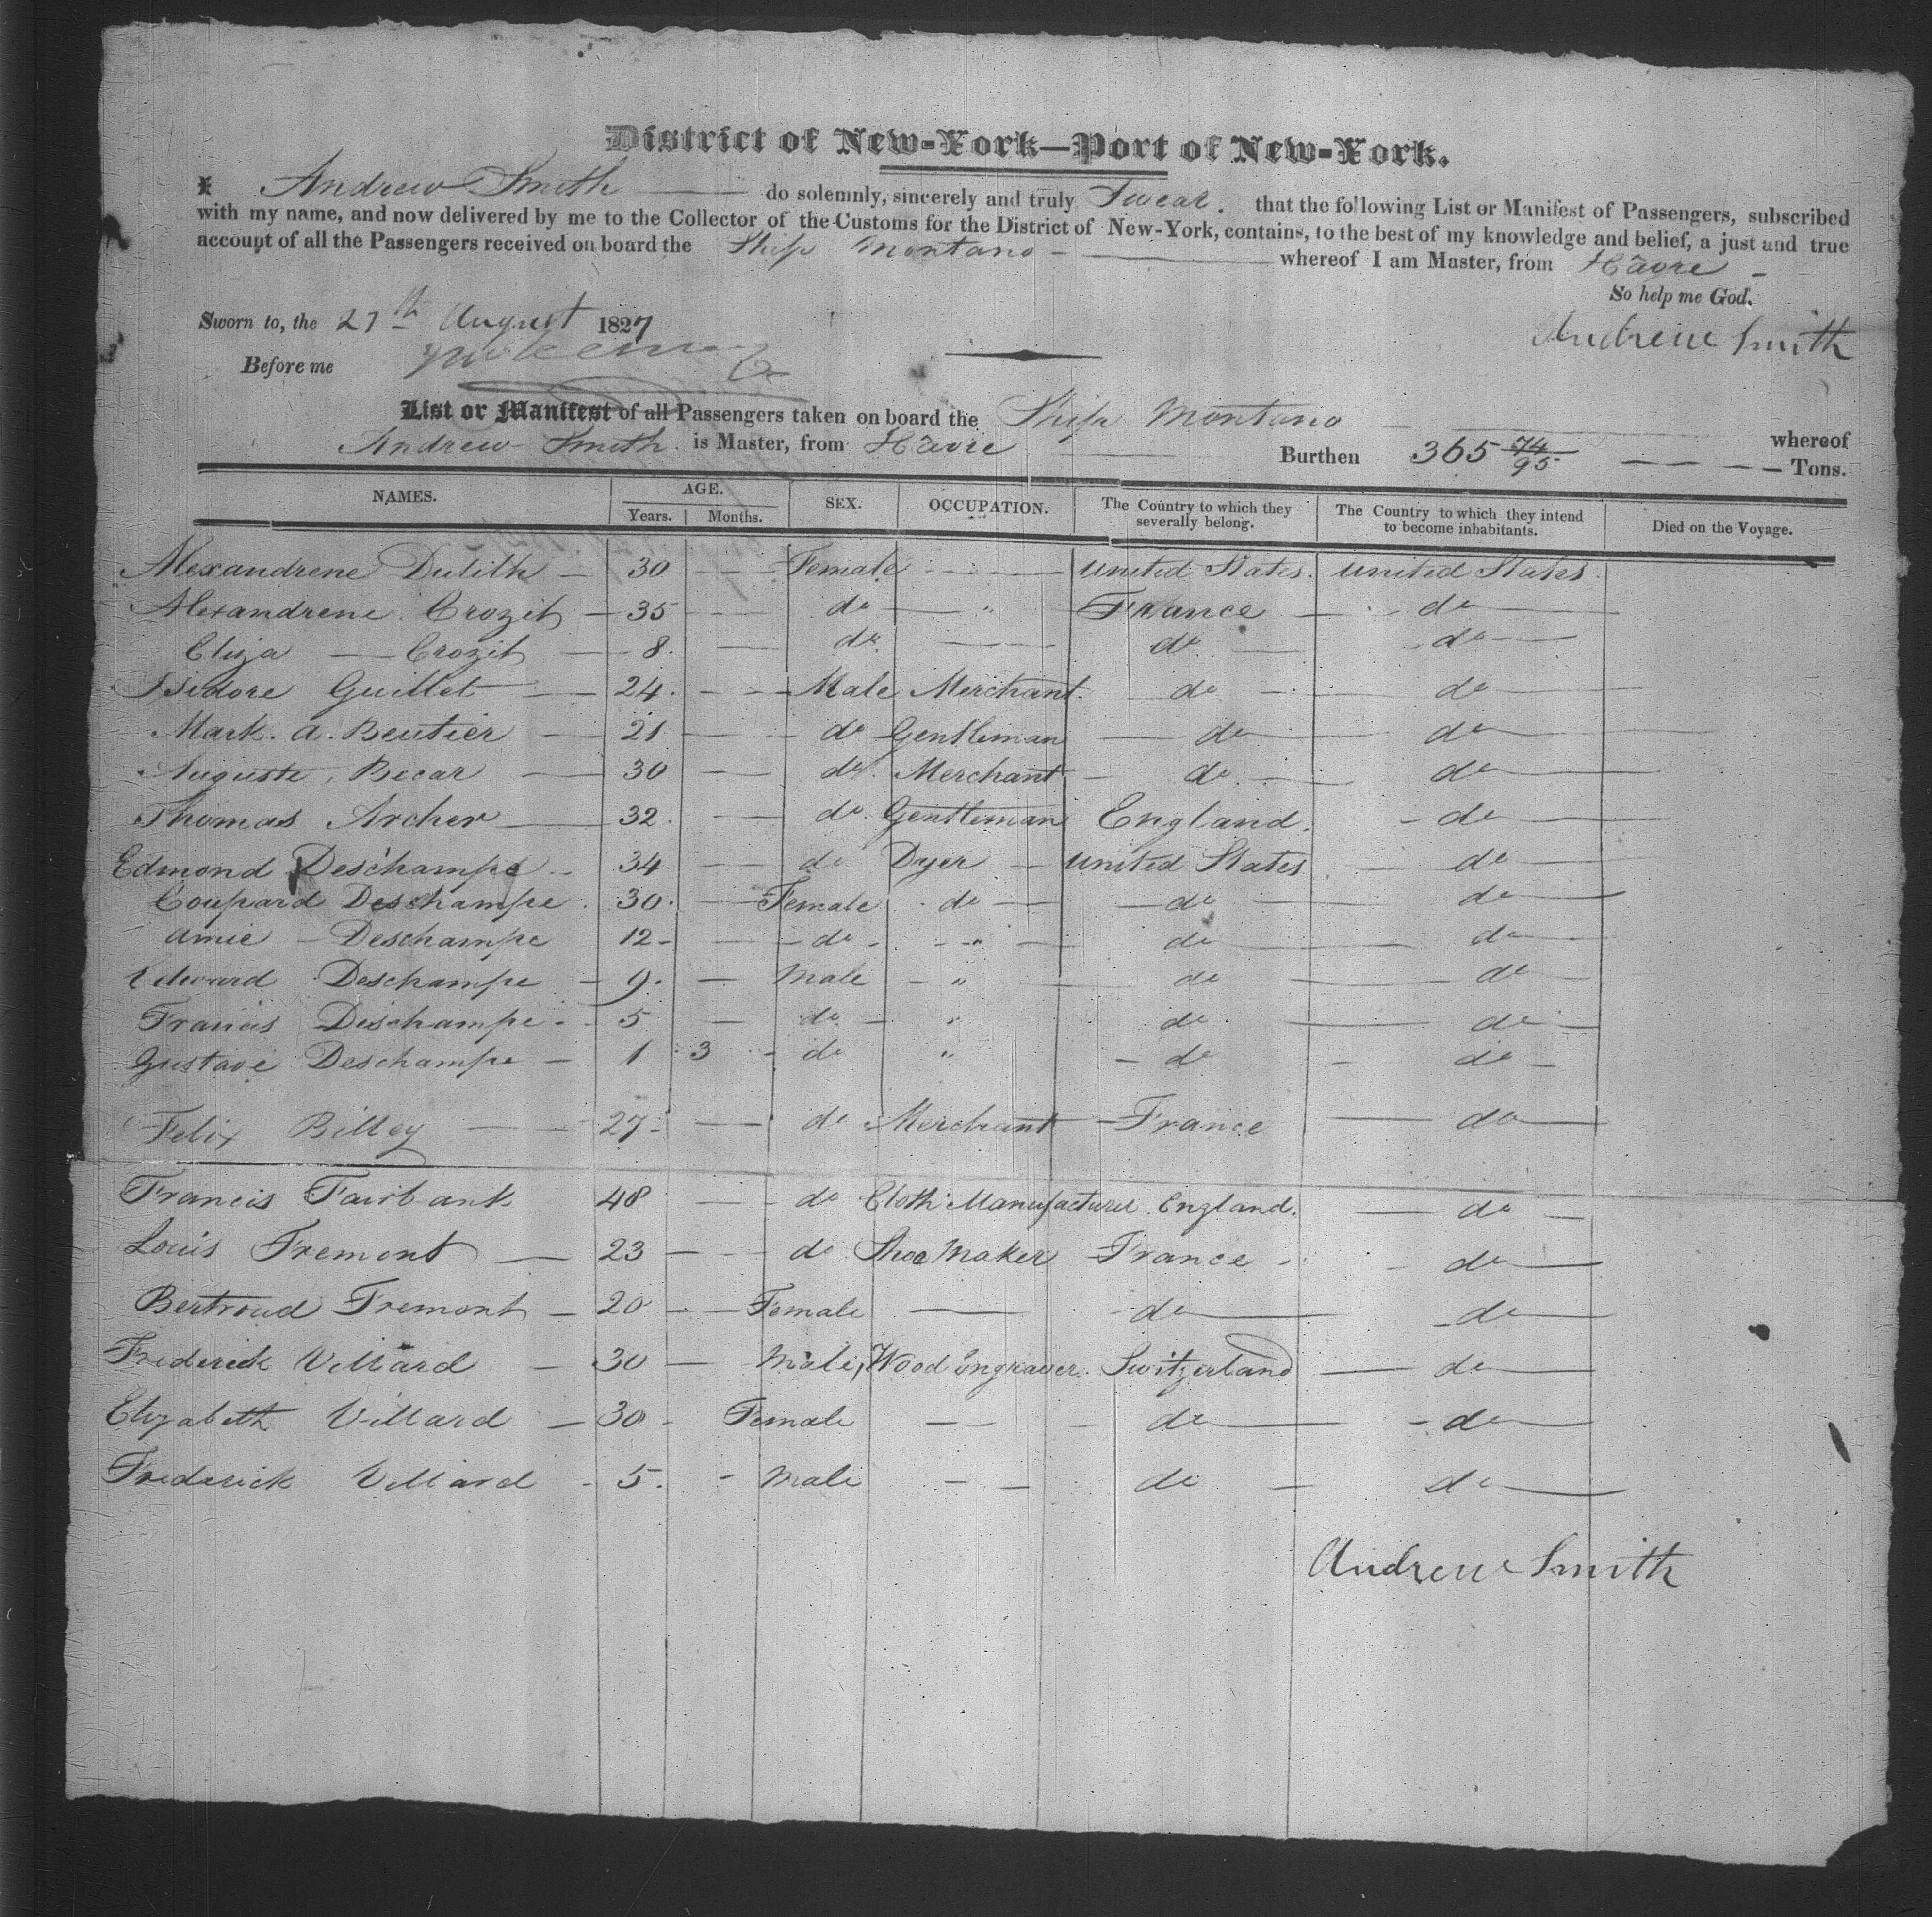 District of New-York—Port of New-York.
I Andrew Smith do solemnly, sincerely and truly Swear. that the following List or Manifest of Passengers, subscribed
with my name, and now delivered by me to the Collector of the Customs for the District of New-York, contains, to the best of my knowledge and belief, a just and true
account of all the Passengers received on board the Ship Montano whereof I am Master, from Havre
So help me God.
Sworn to, the 27th August 1827
Andrew Smith
Before me
List or Manifest of all Passengers taken on board the Ship Montano whereof
Andrew Smith is Master, from Havre Burthen 365 74/95 Tons.
NAMES. AGE. SEX. OCCUPATION. The Country to which they severally belong. The Country to which they intend to become inhabitants. Died on the Voyage.
Years. Months.
Alexandrene Dulith 30 Female United States. United States.
Alexandrene Crozit 35 do " France do
Eliza Crozit 8. do do do
Isidore Guillet 24. Male Merchant. do do
Mark. A. Beutier 21 do Gentleman do do
Auguste Becar 30 do Merchant do do
Thomas Archer 32. do Gentleman England. do
Edmond Deschampe 34 do Dyer United States do
Coupard Deschampe 30. Female do do do
Amie Deschampe 12 do " do do
Edward Deschampe 9. Male " do do
Francis Deschampe 5 do " do do
Gustave Deschampe 1 3 do " do do
Felix Billey 27 do Merchant France do
Francis Fairbank 48 do Cloth Manufacturer England. do
Louis Fremont 23 do Shoe Maker France do
Bertroud Fremont 20 Female do do
Frederick Villard 30 Male Wood Engraver. Switzerland do
Elizabeth Villard 30 Female do do
Frederick Villard 5. Male do do
Andrew Smith